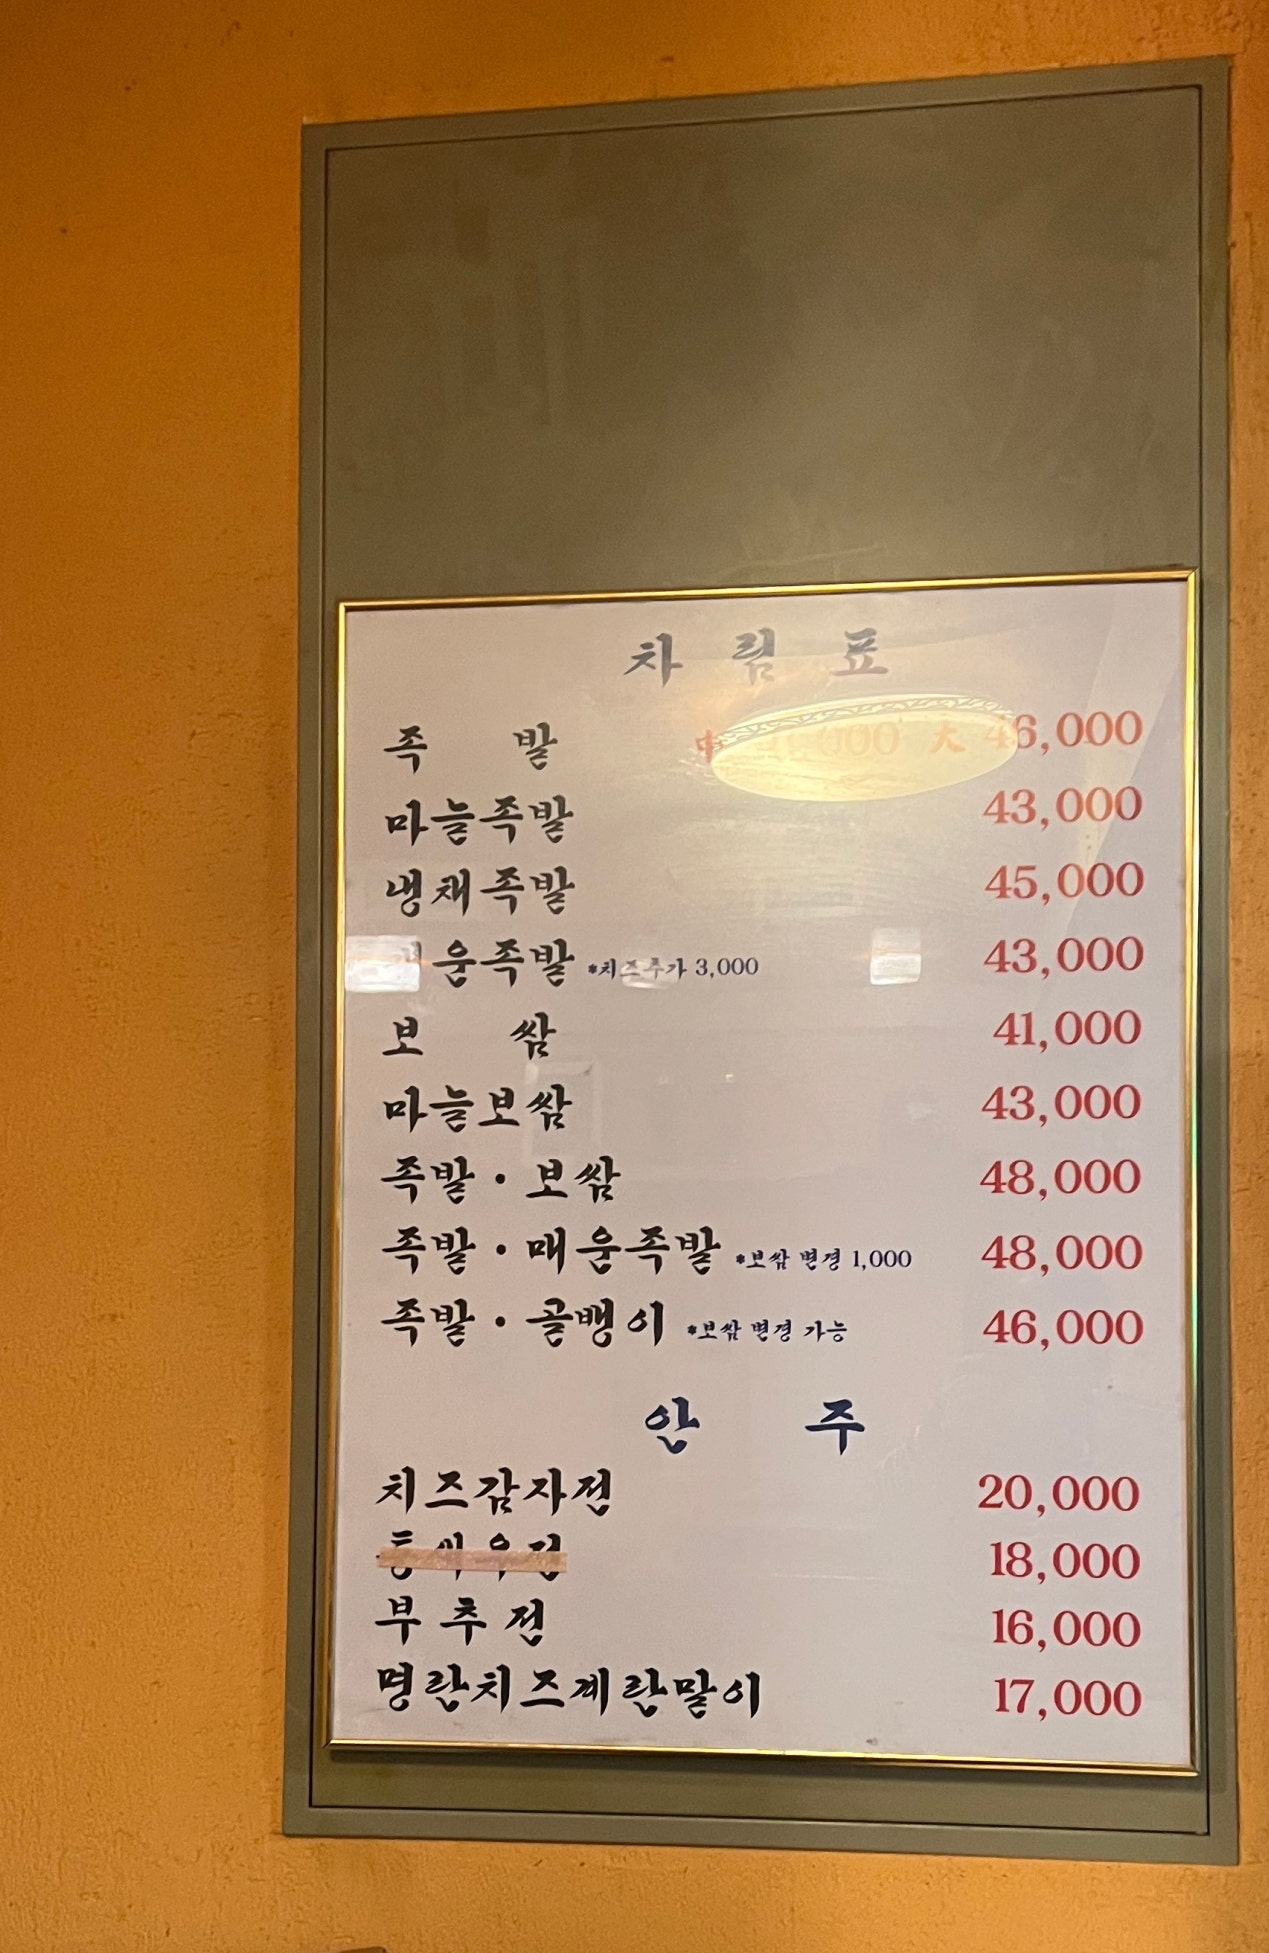 차 림 표
족 발 中 大 46,000
마늘족발 43,000
냉채족발 45,000
족발 *치즈추가 3,000 43,000
보 쌈 41,000
마늘보쌈 43,000
족발 · 보쌈 48,000
족발 · 매운족발 *보쌈 변경 1,000 48,000
족발 · 골뱅이 *보쌈 변경 가능 46,000
안 주
치즈감자전 20,000
18,000
부추전 16,000
명란치즈계란말이 17,000